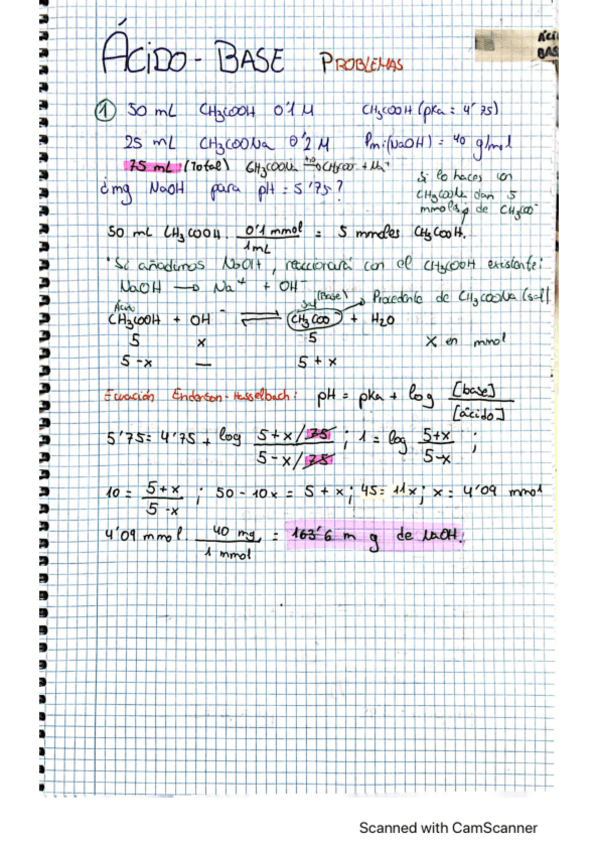 ÁCIDO - BASE PROBLEMAS
ÁCI
BAS
① 50 mL CH₃COOH 0'1 M CH₃COOH (pKa = 4'75)
25 mL CH₃COONa 0'2 M Pm:(NaOH) = 40 g/mol
75 mL (Total) CH₃COONa → CH₃COO⁻ + Na⁺
¿mg NaOH para pH = 5'75?
Si lo haces con
CH₃COONa dan 5
mmoles de CH₃COO⁻
50 mL CH₃COOH · 0'1 mmol / 1 mL = 5 mmoles CH₃COOH.
"Si añadimos NaOH, reaccionará con el CH₃COOH existente:
NaOH → Na⁺ + OH⁻
Ácido Sal (Base) → Procedente de CH₃COONa (sal)
CH₃COOH + OH⁻ ⇌ CH₃COO⁻ + H₂O
5 x 5 X en mmol
5-x — 5+x
Ecuación Enderson-Hasselbach: pH = pKa + log [base] / [ácido]
5'75 = 4'75 + log 5+x/75 / 5-x/75 ; 1 = log 5+x / 5-x ;
10 = 5+x / 5-x ; 50 - 10x = 5 + x ; 45 = 11x ; x = 4'09 mmol
4'09 mmol · 40 mg / 1 mmol = 163'6 mg de NaOH.
Scanned with CamScanner